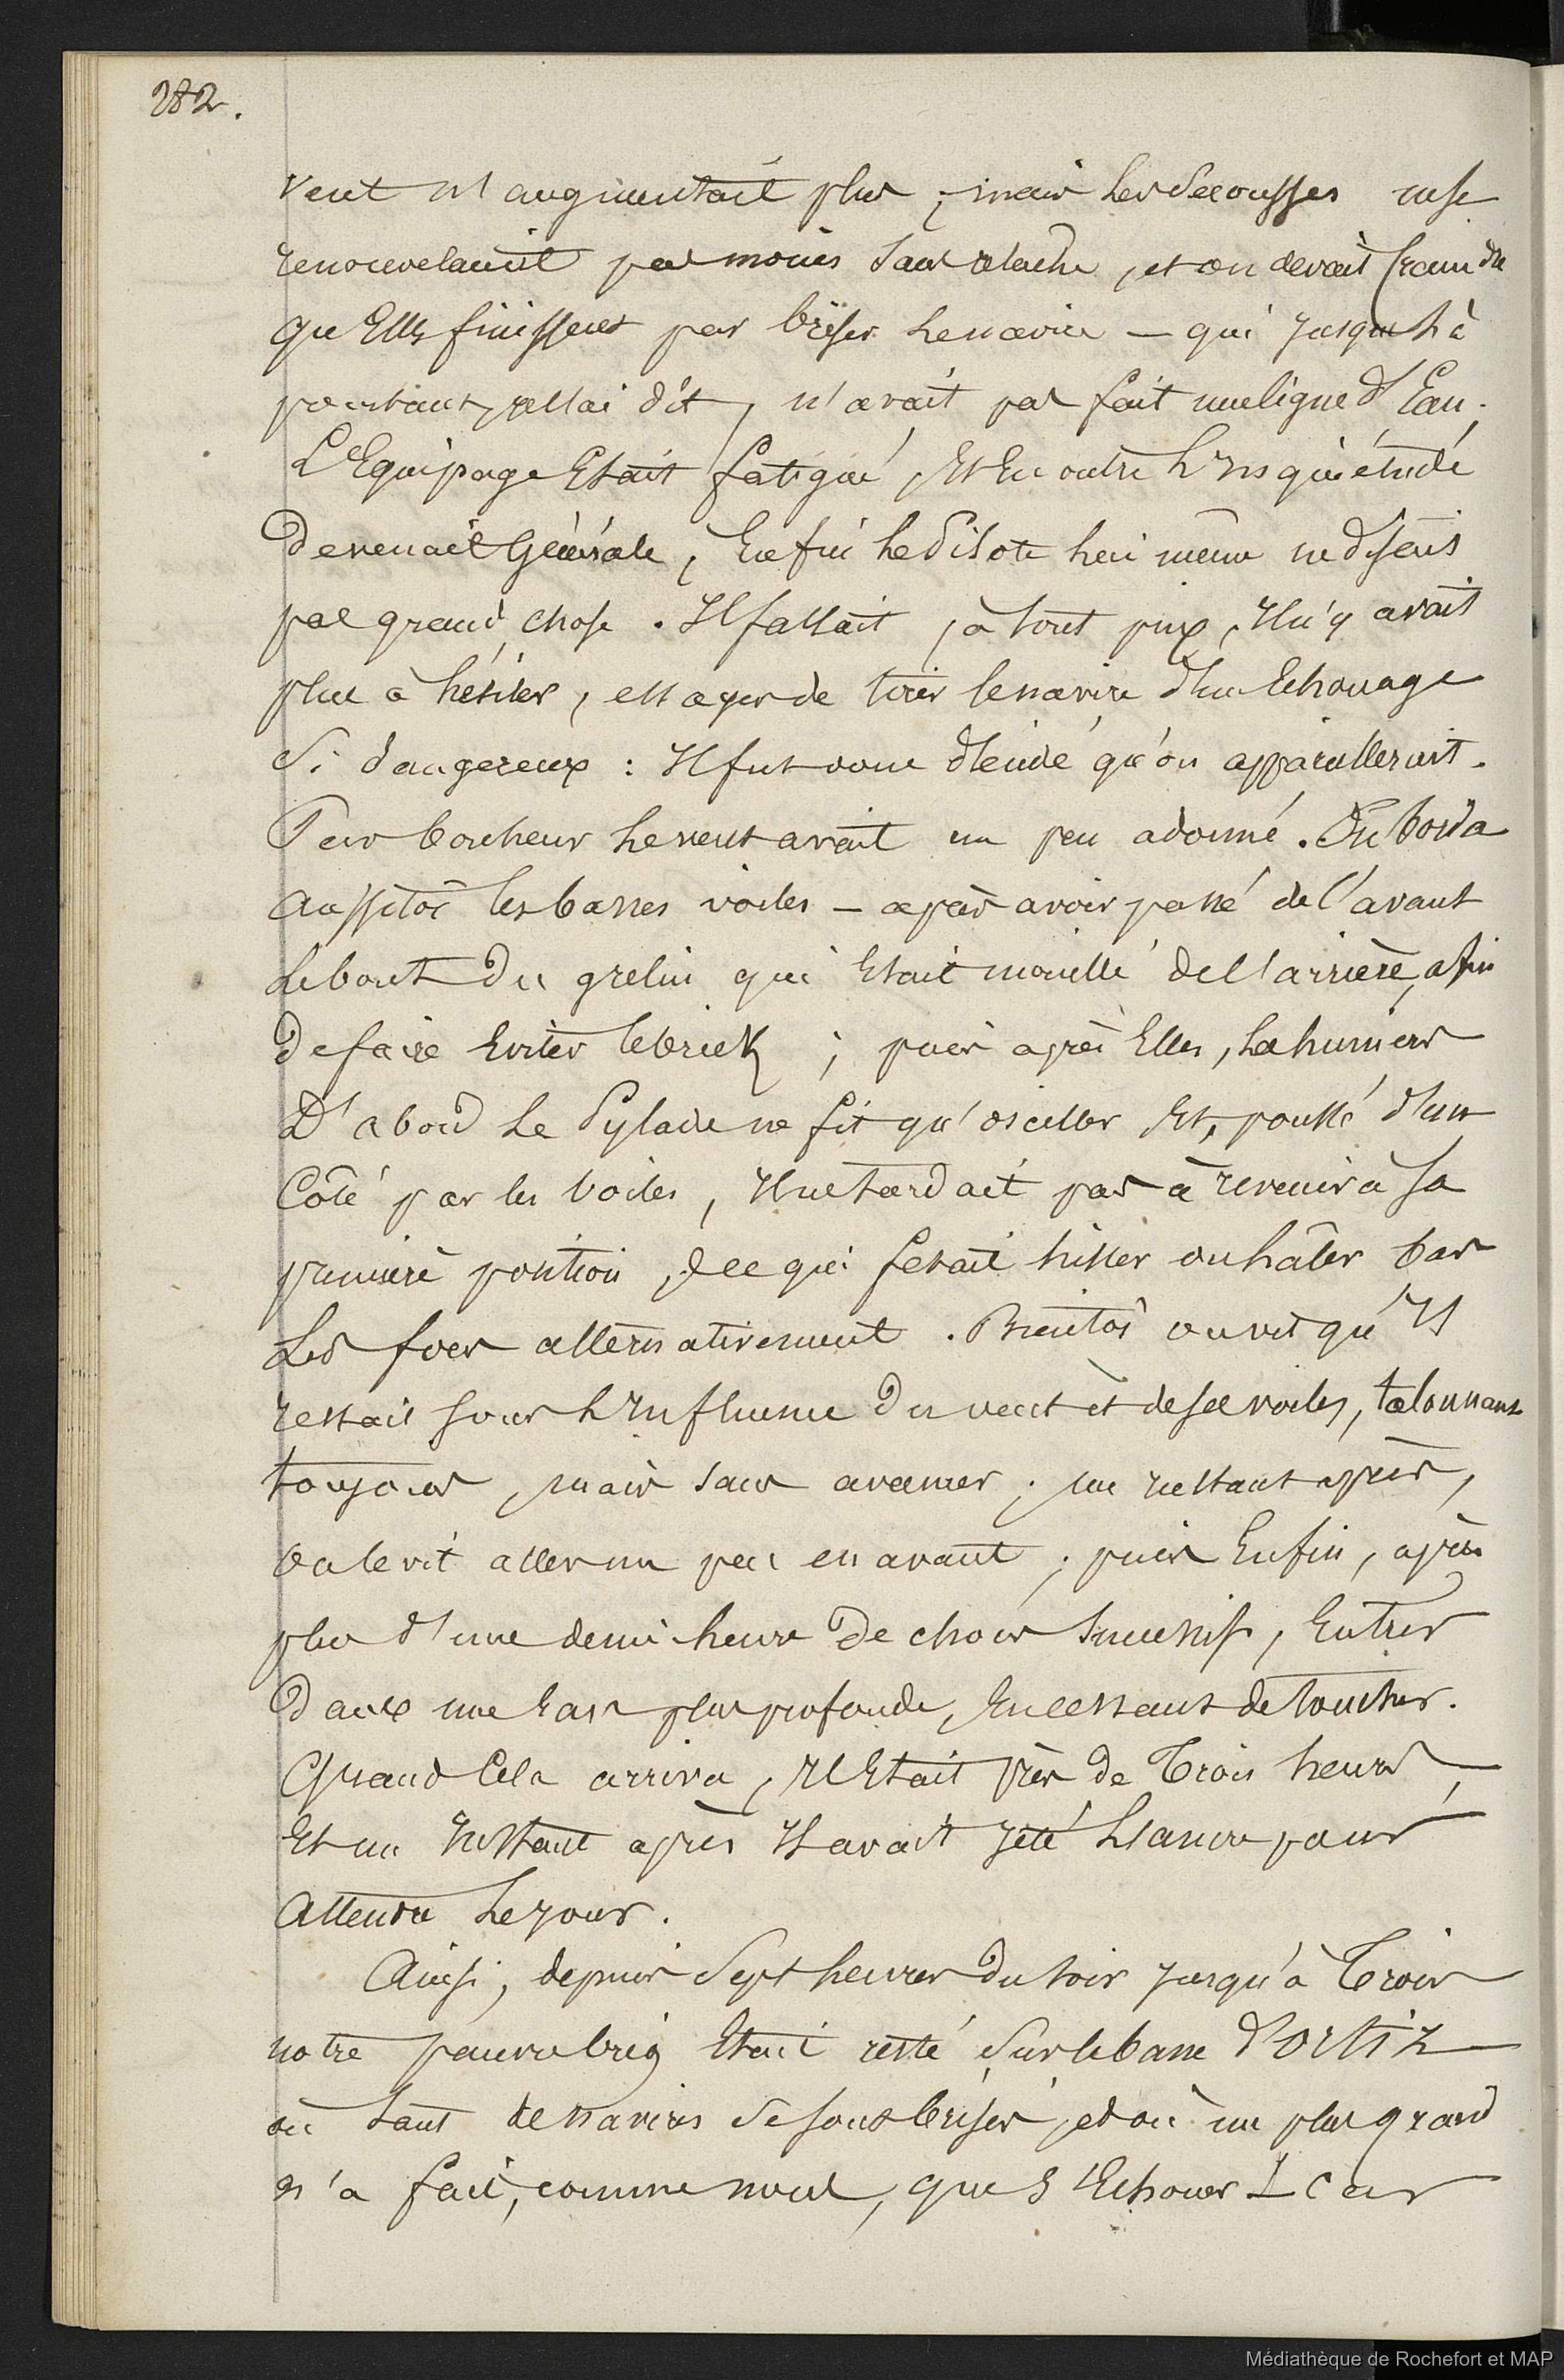 282.
vent n'augmentait plus ; mais les secousses ne se
renouvelaient pas moins sans relâche, et on devait craindre
qu'Elles finissent par briser le navire — qui jusque là
pourtant, je l'ai dit, n'avait pas fait une ligne d'Eau.
L'Equipage Etait fatigué, Et En outre l'Inquiétude
devenait Générale ; Enfin le Pilote lui même ne disait
pas grand chose. Il fallait, à tout prix, Il n'y avait
plus à hésiter, essayer de tirer le navire d'un Echouage
si dangereux : Il fut donc décidé qu'on appareillerait.
Par bonheur le vent avait un peu adonné. On borda
aussitôt les basses voiles — après avoir passé de l'avant
le bout du grelin qui Etait mouillé de l'arrière, afin
de faire Eviter le brick ; puis après Elles, les huniers
D'abord le Pylade ne fit qu'osciller Et, poussé d'un
Côté par les voiles, Il ne tardait pas à revenir à sa
première position, ce qui fesait hisser ou hâler bas
Les focs alternativement. Bientôt on vit qu'Il
restait sous l'Influence du vent et de ses voiles, talonnant
toujours, mais sans avancer ; un Instant après,
on le vit aller un peu en avant ; puis Enfin, après
plus d'une demi heure de chocs successifs, Entrer
dans une Eau plus profonde, En cessant de toucher.
Quand Cela arriva, Il Etait près de Trois heures,
Et un Instant après Il avait jeté l'ancre pour
Attendre le jour.
Ainsi, depuis Sept heures du soir jusqu'à Trois
notre pauvre brig Etait resté sur le banc d'ortiz
où tant de navires se sont brisés, et où un plus grand
n'a fait, comme nous, que s'Echouer — car
Médiathèque de Rochefort et MAP